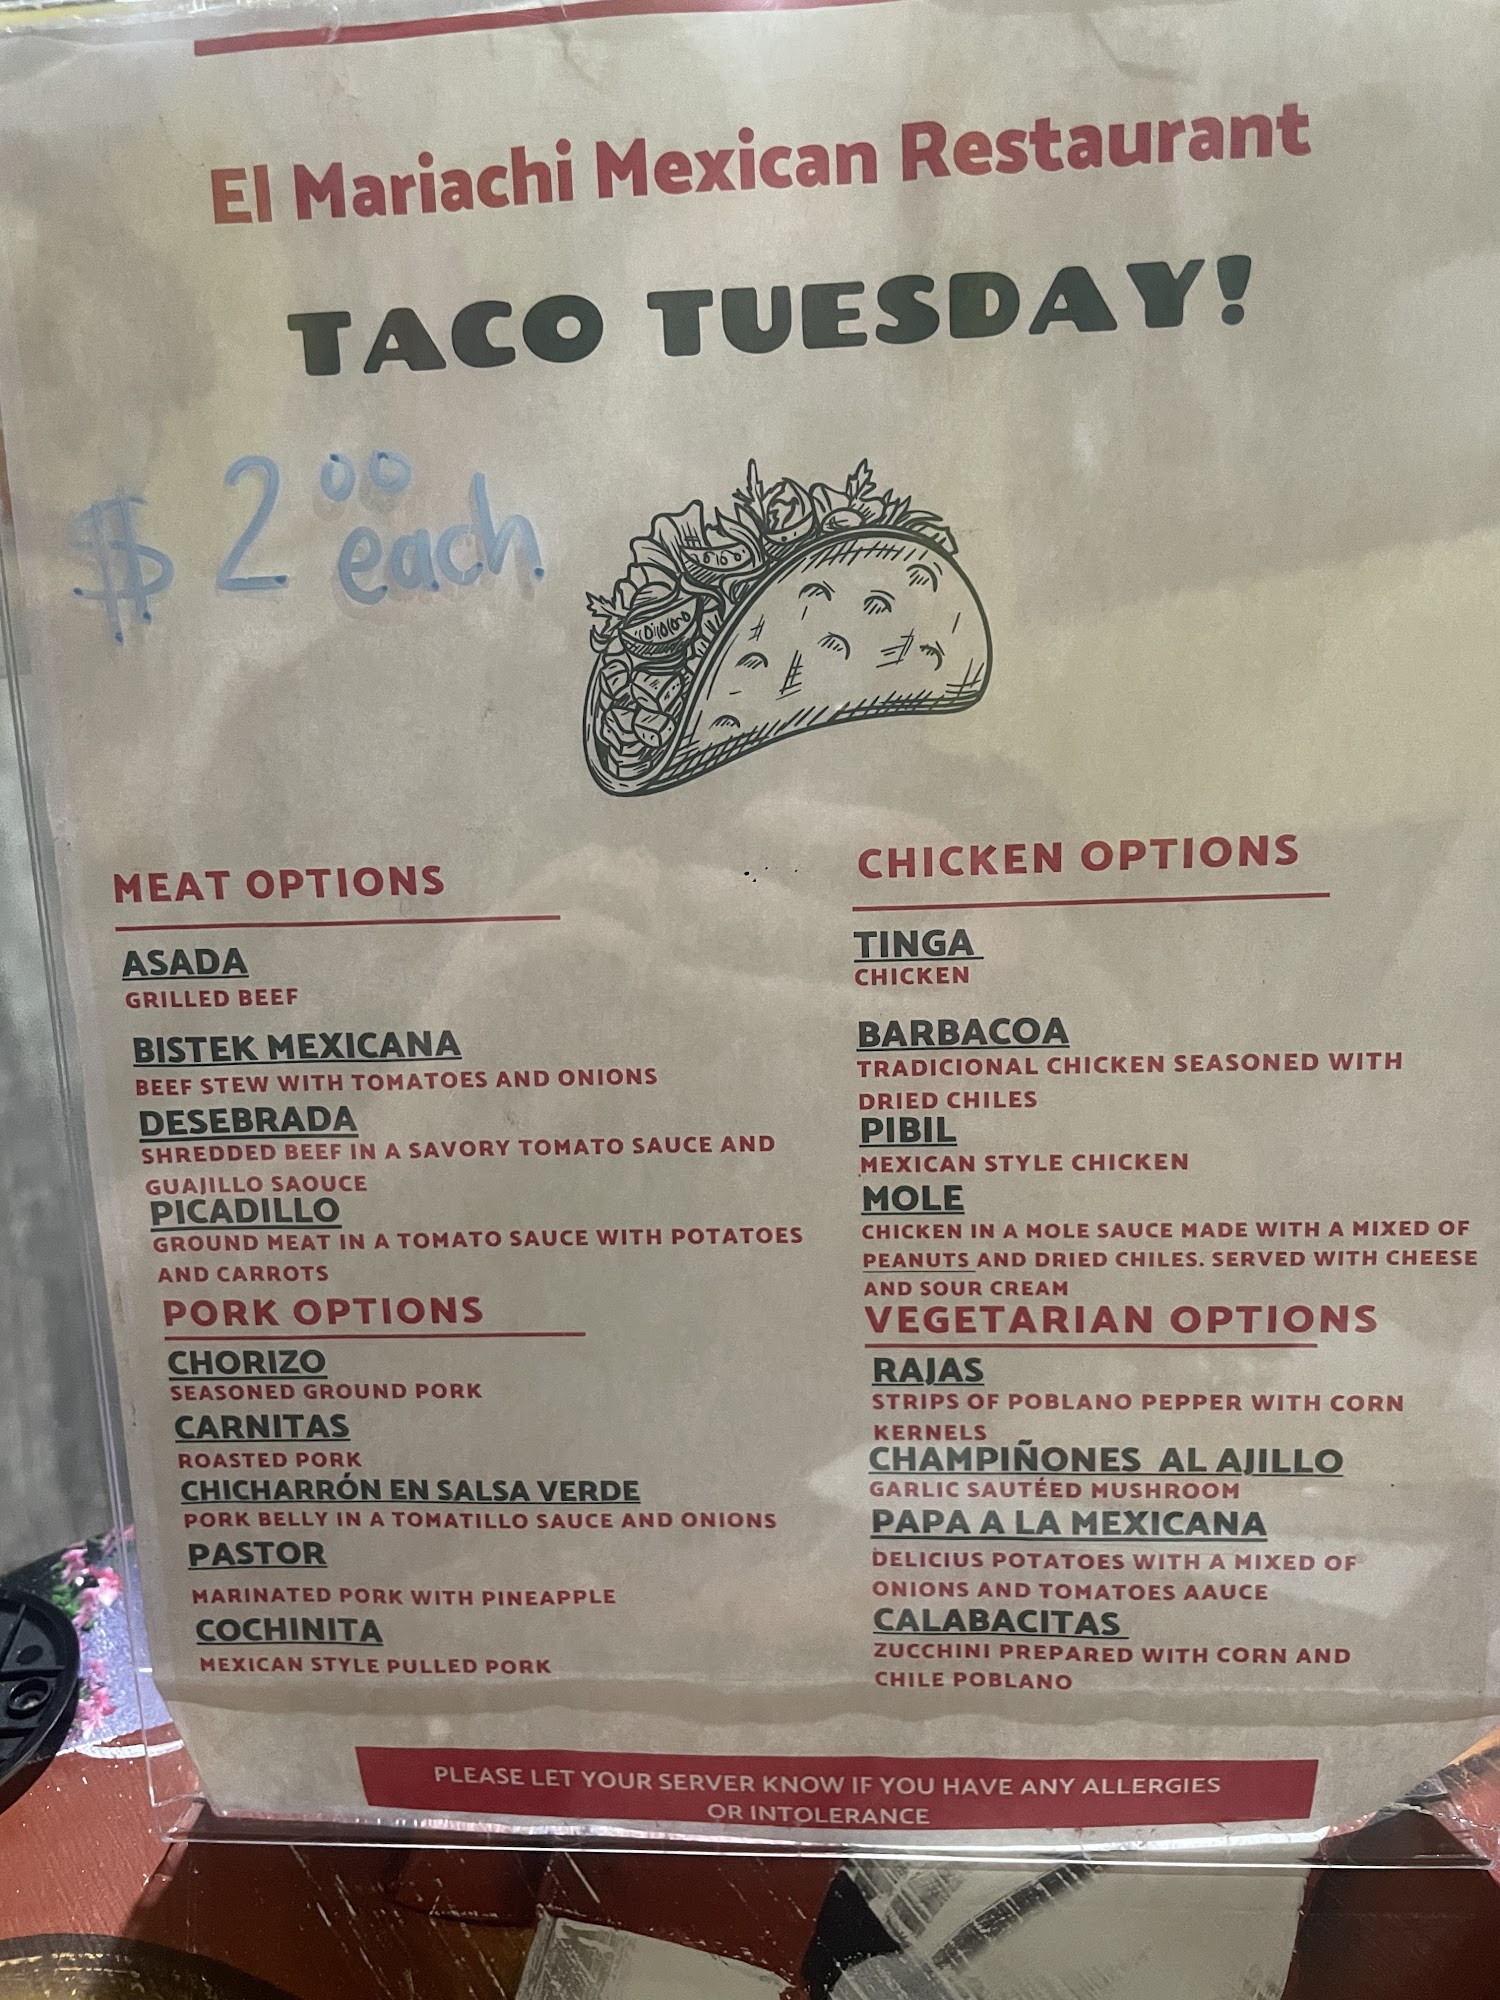 El Mariachi Mexican Restaurant
TACO TUESDAY!
$ 2 00 each
MEAT OPTIONS
ASADA
GRILLED BEEF
BISTEK MEXICANA
BEEF STEW WITH TOMATOES AND ONIONS
DESEBRADA
SHREDDED BEEF IN A SAVORY TOMATO SAUCE AND
GUAJILLO SAOUCE
PICADILLO
GROUND MEAT IN A TOMATO SAUCE WITH POTATOES
AND CARROTS
PORK OPTIONS
CHORIZO
SEASONED GROUND PORK
CARNITAS
ROASTED PORK
CHICHARRÓN EN SALSA VERDE
PORK BELLY IN A TOMATILLO SAUCE AND ONIONS
PASTOR
MARINATED PORK WITH PINEAPPLE
COCHINITA
MEXICAN STYLE PULLED PORK
CHICKEN OPTIONS
TINGA
CHICKEN
BARBACOA
TRADICIONAL CHICKEN SEASONED WITH
DRIED CHILES
PIBIL
MEXICAN STYLE CHICKEN
MOLE
CHICKEN IN A MOLE SAUCE MADE WITH A MIXED OF
PEANUTS AND DRIED CHILES. SERVED WITH CHEESE
AND SOUR CREAM
VEGETARIAN OPTIONS
RAJAS
STRIPS OF POBLANO PEPPER WITH CORN
KERNELS
CHAMPIÑONES AL AJILLO
GARLIC SAUTÉED MUSHROOM
PAPA A LA MEXICANA
DELICIUS POTATOES WITH A MIXED OF
ONIONS AND TOMATOES AAUCE
CALABACITAS
ZUCCHINI PREPARED WITH CORN AND
CHILE POBLANO
PLEASE LET YOUR SERVER KNOW IF YOU HAVE ANY ALLERGIES
OR INTOLERANCE